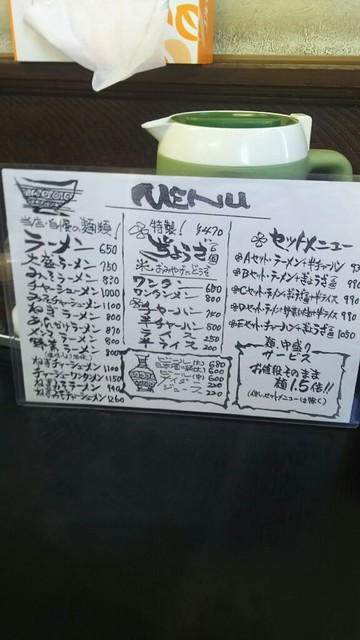 MENU
当店自慢の麺類!
ラーメン 650
大盛ラーメン 750
みそラーメン 800
チャーシューメン 1000
みそチャーシューメン 1100
ねぎラーメン 800
ラーメン 800
ねぎチャーシューメン 1100
チャーシューワンタンメン 1150
ねぎみそラーメン
ねぎみそチャーシューメン 1260
特製!
ぎょうざ 6個 ¥470
※おみやげにどうぞ
ワンタン 600
ワンタンメン 800
チャーハン
半チャーハン 500
ライス 250
半ライス 200
ビール(大) 680
ビール(中) 600
ジュース 220
セットメニュー
Aセット・ラーメン+半チャーハン
Bセット・ラーメン+ぎょうざ
Cセット・ラーメン+ぎょうざ+半ライス 990
Dセット・ラーメン+野菜いため+半ライス 990
Eセット・チャーハン+ぎょうざ 1050
麺中盛り
サービス
お値段そのまま
麺1.5倍!!
(但し、セットメニューは除く)